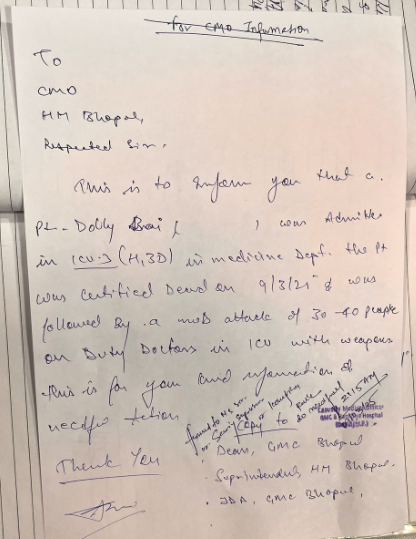 For CMO Information
To
CMO
HM Bhopal,
Respected Sir.
This is to inform you that a.
Pt- Dolly Bai ( ) was Admitted
in ICU-3 (H,3D) in medicine Dept. the Pt
was certified Dead on 9/3/25 & was
followed By a mob attack of 30-40 people
on Duty Doctors in ICU with weapons
This is for your kind information &
needful action
Copy to
Thank You
. Dean, GMC Bhopal
. Suprintendent, HM Bhopal.
. JDA, GMC Bhopal,